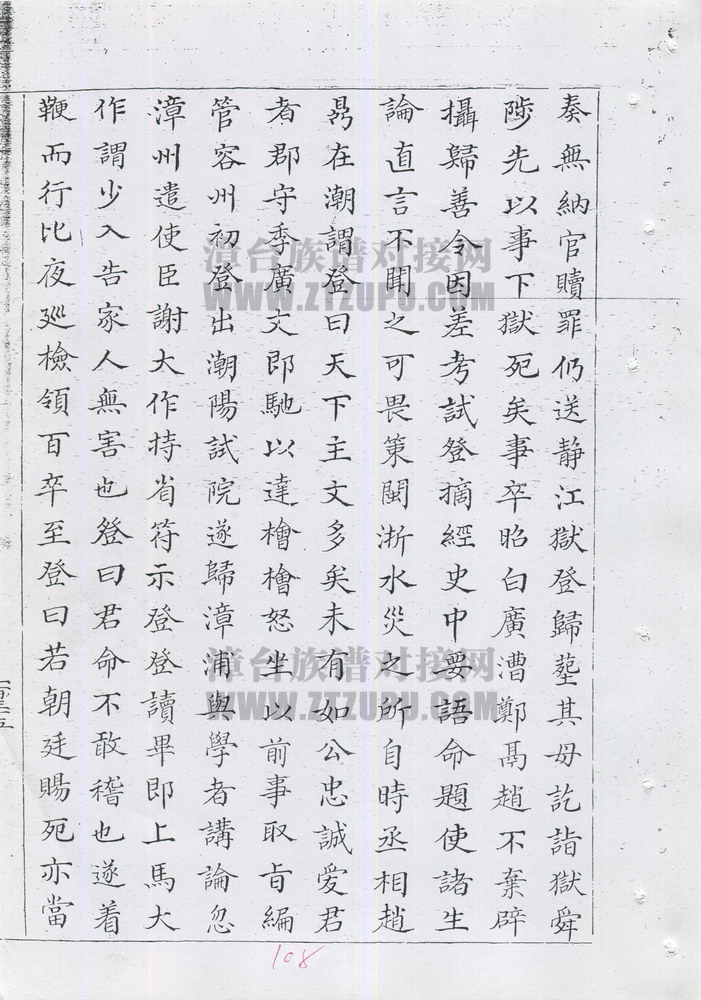 奏無納官贖罪仍送静江獄登歸塟其母訖詣獄舜
陟先以事下獄死矣事卒昭白廣漕鄭鬲趙不棄辟
攝歸善令因差考試登摘經史中要語命題使諸生
論直言不聞之可畏策閩浙水災之所自時丞相趙
在潮謂登曰天下主文多矣未有如公忠誠愛君
者郡守季廣文即馳以達檜檜怒坐以前事取旨編
管容州初登出潮陽試院遂歸漳浦與學者講論忽
漳州遣使臣謝大作持省符示登登讀畢即上馬大
作謂少入告家人無害也登曰君命不敢稽也遂着
鞭而行比夜廵檢領百卒至登曰若朝廷賜死亦當
漳台族谱对接网
WWW.ZTZUPU.COM
漳台族谱对接网
WWW.ZTZUPU.COM
108